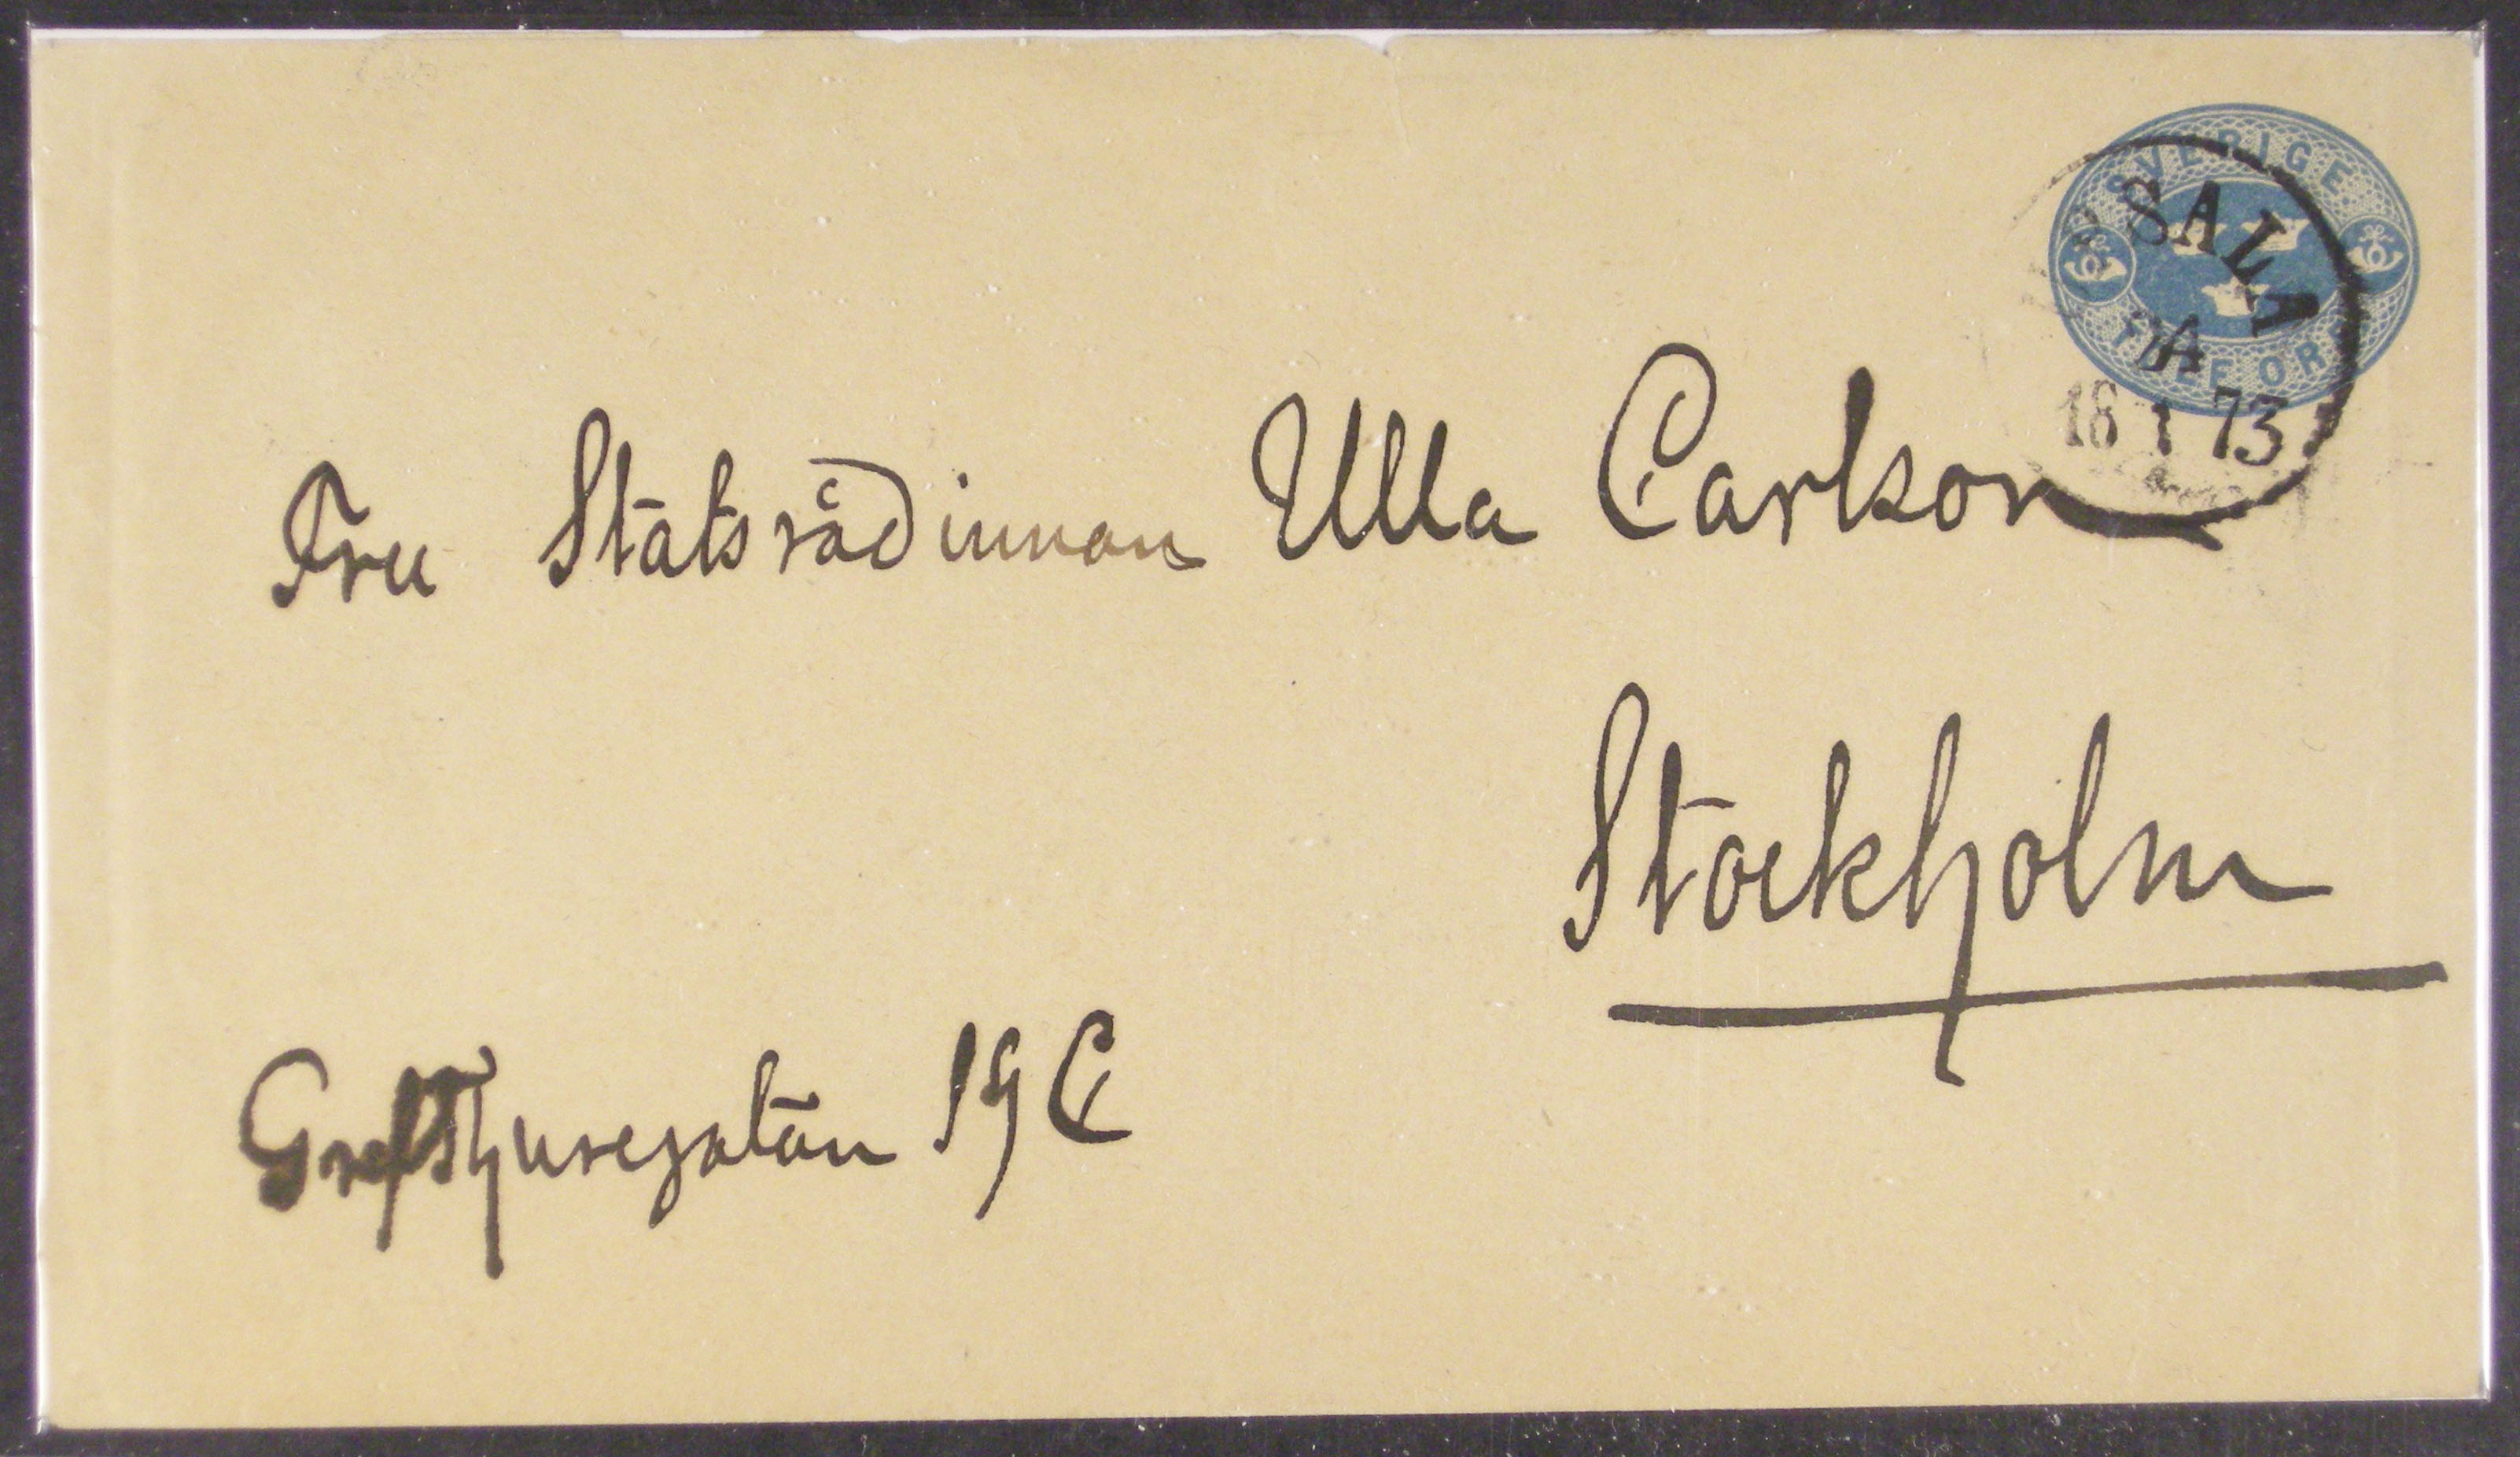 SVERIGE
TOLF ÖRE
UPSALA
18 1 73
Fru Statsrådinnan Ulla Carlson
Stockholm
GrefThuregatan 19 C